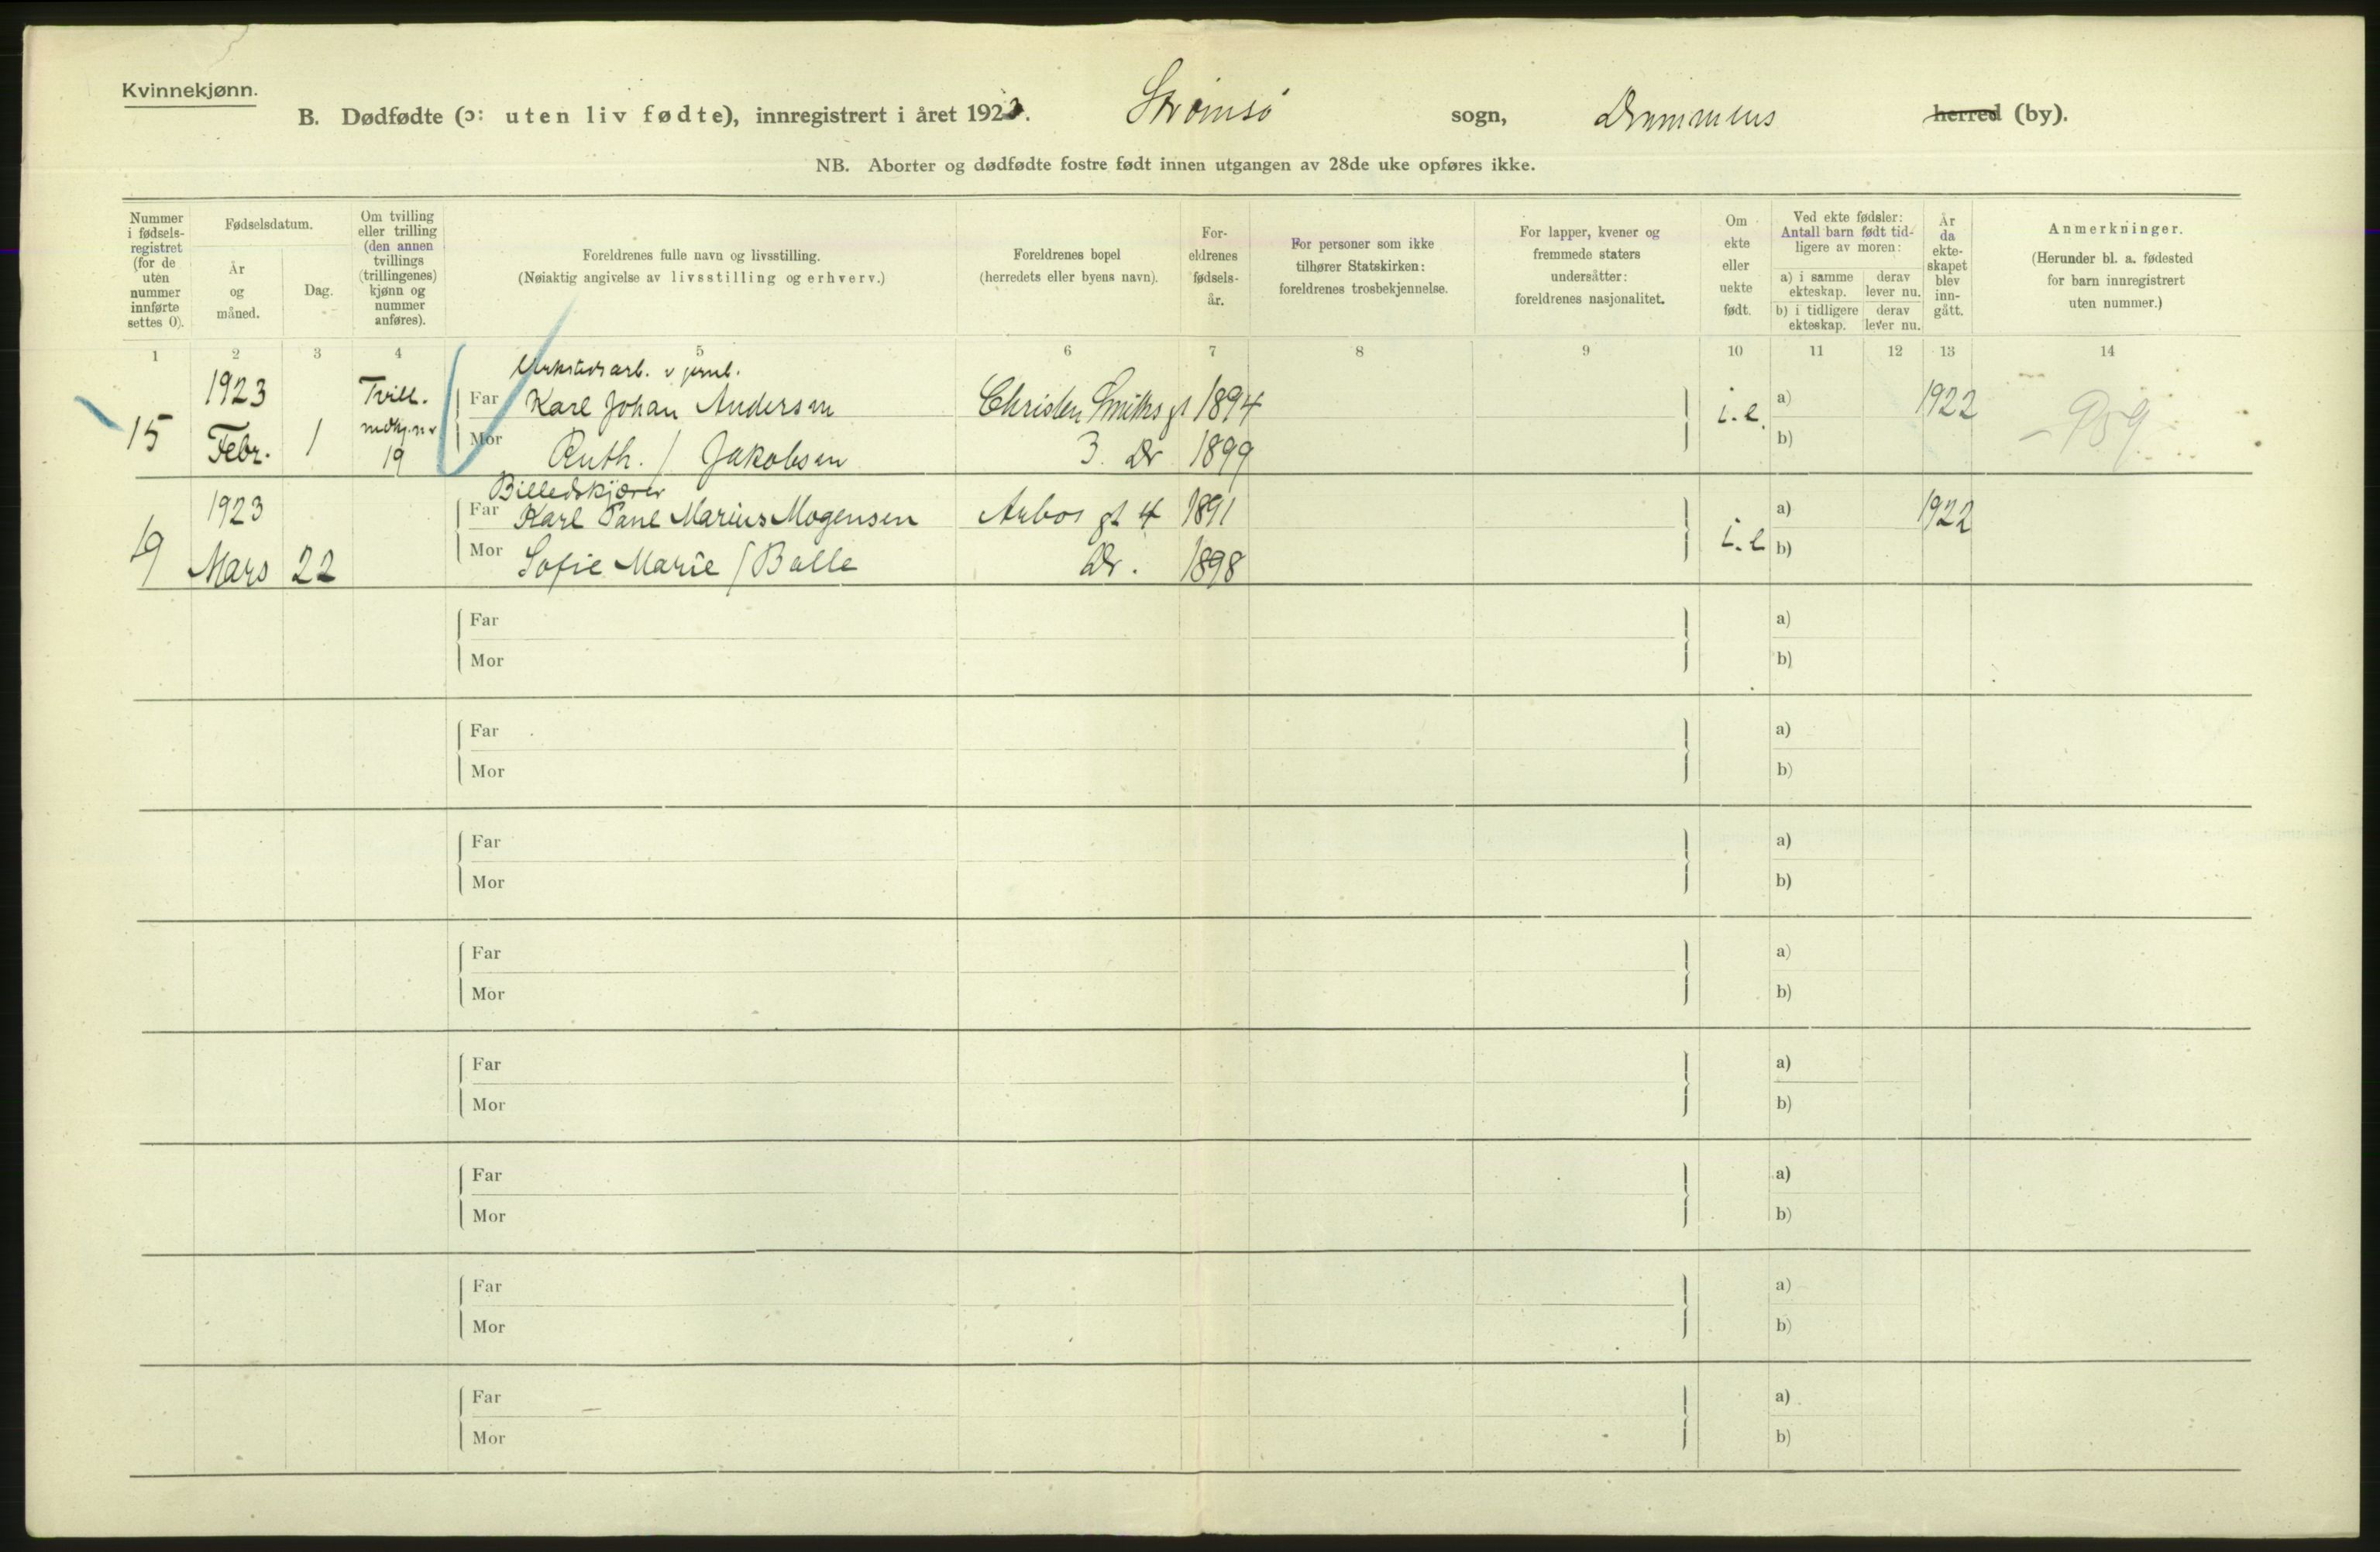 Kvinnekjønn.
B. Dødfødte (ɔ: uten liv fødte), innregistrert i året 1923. Strømsø sogn, Drammens herred (by).
NB. Aborter og dødfødte fostre født innen utgangen av 28de uke opføres ikke.
Nummer
i fødsels-
registret
(for de
uten
nummer
innførte
settes 0).
Fødselsdatum.
År
og
måned.
Dag.
Om tvilling
eller trilling
(den annen
tvillings
(trillingenes)
kjønn og
nummer
anføres).
Foreldrenes fulle navn og livsstilling.
(Nøiaktig angivelse av livsstilling og erhverv.)
Foreldrenes bopel
(herredets eller byens navn).
For-
eldrenes
fødsels-
år.
For personer som ikke
tilhører Statskirken:
foreldrenes trosbekjennelse.
For lapper, kvener og
fremmede staters
undersåtter:
foreldrenes nasjonalitet.
Om
ekte
eller
uekte
født.
Ved ekte fødsler:
Antall barn født tid-
ligere av moren:
a) i samme
ekteskap.
derav
lever nu.
b) i tidligere
ekteskap.
derav
lever nu.
År
da
ekte-
skapet
blev
inn-
gått.
Anmerkninger.
(Herunder bl. a. fødested
for barn innregistrert
uten nummer.)
1 2 3 4 5 6 7 8 9 10 11 12 13 14
Verkstedsarb. v jernb.
1923 Tvill. Far Karl Johan Andersen Christen Smiths gt 1894 a) 1922
15 Febr. 1 19 Mor Ruth. / Jakobsen 3. Dr 1899 i.e. b) 959
Billedskjærer
1923 Far Karl Marius Mogensen Arbos gt 4 1891 a) 1922
19 Mars 22 Mor Sofie Marie / Balle Dr. 1898 i.e b)
Far a)
Mor b)
Far a)
Mor b)
Far a)
Mor b)
Far a)
Mor b)
Far a)
Mor b)
Far a)
Mor b)
Far a)
Mor b)
Far a)
Mor b)